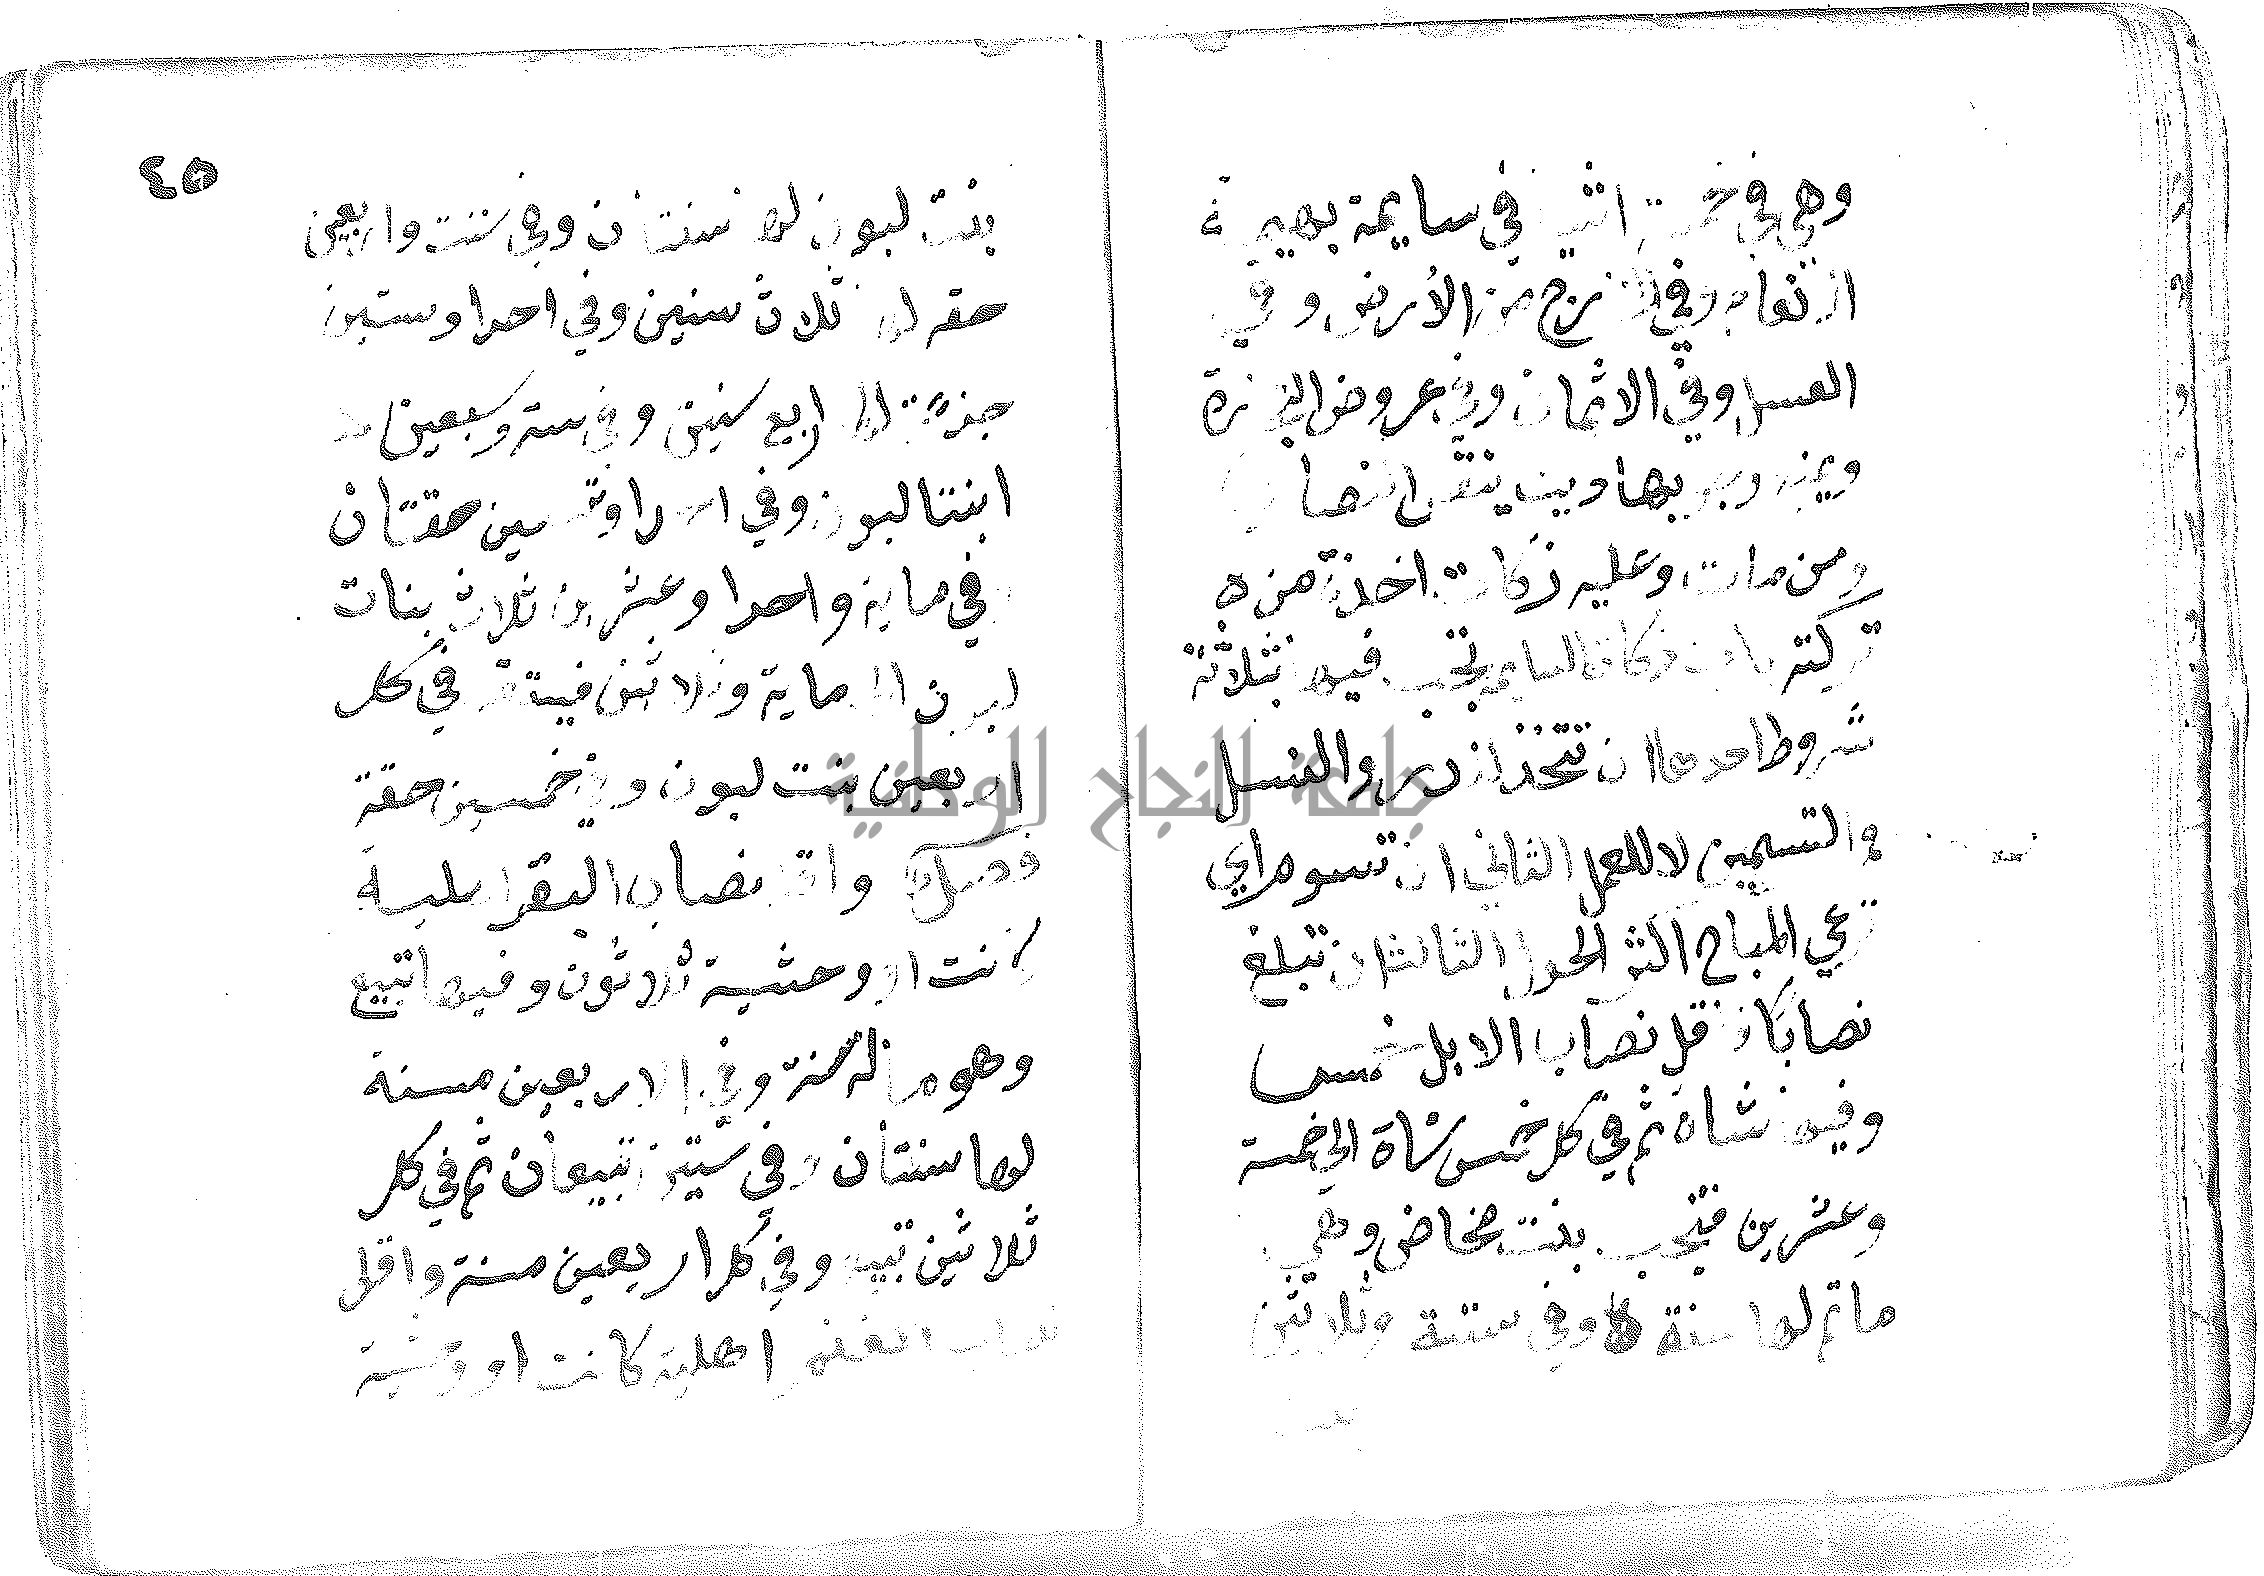 وهي في خمسة اشيا في سايمة بهيمة
الانعام وفي الخارج من الارض وفي
العسل وفي الاثمان وفي عروض التجارة
ويمنع وجوبها دين ينقص النصاب
ومن مات وعليه زكات اخذة من
تركته باب زكاة السايمه تجب فيها بثلاثة
شروط احدها ان تتخذ لدر والنسل
والتسمين لا للعمل الثاني ان تسوم اي
ترعي المباح اكثر الحول الثالث ان تبلغ
نصابا فاقل نصاب الابل خمس
وفيها شاة ثم في كل خمس شاة الى خمسة
وعشرين فتجب بنت مخاض وهي
ما تم لها سنة وفي ستة وثلاثين
٤٥
بنت لبون لها سنتان وفي ست واربعين
حقه لها ثلاث سنين وفي احدا وستين
جذعة لها اربع سنين وفي ستة وسبعين
ابنتا لبون وفي احدا وتسعين حقتان
وفي ماية واحدا وعشرين ثلاث بنات
لبون الى ماية وثلاثين في كل
اربعين بنت لبون وفي خمسين حقة
فصل واقل نصاب البقر اهلية
كانت او وحشية ثلاثون وفيها تبيع
وهو ما له سنة وفي الاربعين مسنة
لها سنتان وفي ستين تبيعان ثم في كل
ثلاثين تبيع وفي كل اربعين مسنة واقل
نصاب الغنم اهلية كانت او وحشية
جامعة النجاح الوطنية